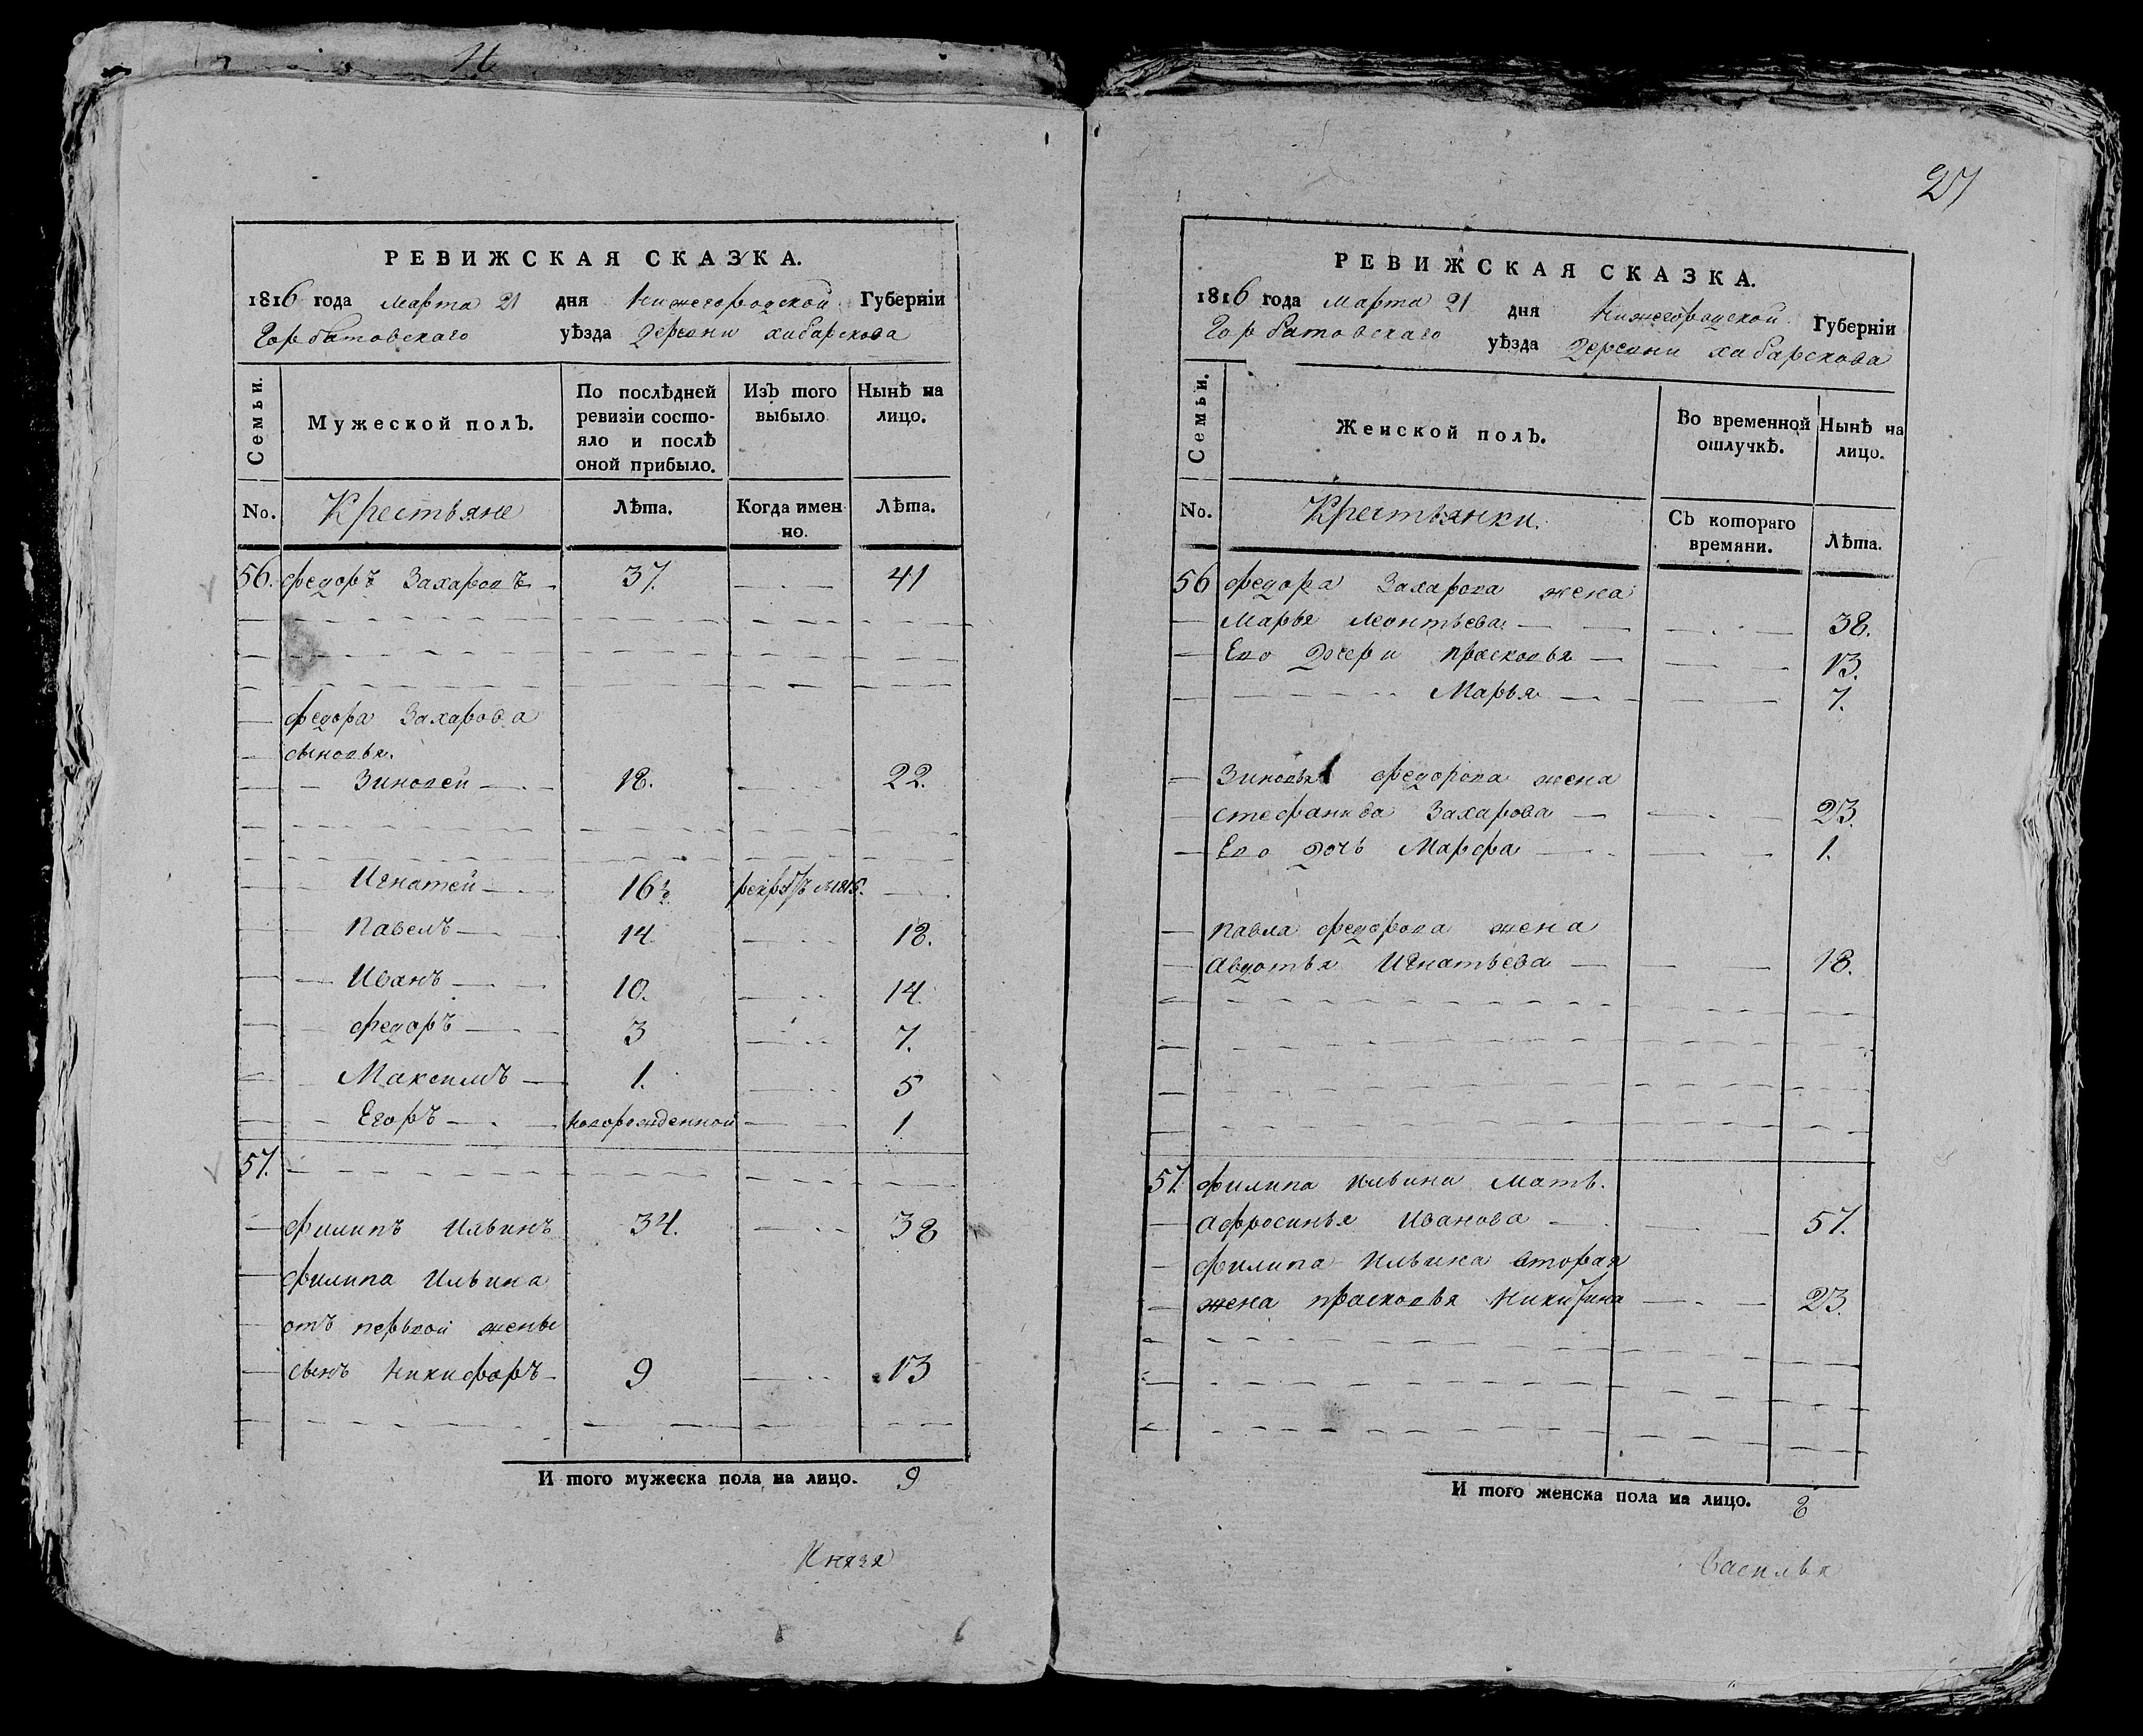 РЕВИЖСКАЯ СКАЗКА.
1816 года Марта 21 дня Нижегородской Губерніи
Горбатовскаго уѣзда Деревни хабарскова
Семьи. Мужеской полъ. По послѣдней ревизіи состояло и послѣ оной прибыло. Изъ того выбыло. Нынѣ на лицо.
No. Крестьяне Лѣта. Когда именно. Лѣта.
56. Федоръ Захаровъ 37. 41
Федора Захарова
сыновья.
Зиновей 18. 22.
Игнатей 16½ рекрутъ 1815.
Павелъ 14 18.
Иванъ 10. 14.
Федоръ 3 7.
Максимъ 1. 5
Егоръ новорожденной 1
57.
Филипъ Ильинъ 34. 38
Филипа Ильина
отъ первой жены
сынъ Никифоръ 9 13
И того мужеска пола на лицо. 9
Князя
27
РЕВИЖСКАЯ СКАЗКА.
1816 года Марта 21 дня Нижегородской Губерніи
Горбатовскаго уѣзда Деревни хабарскова
Семьи. Женской полъ. Во временной отлучкѣ. Нынѣ на лицо.
No. Крестьянки. Съ котораго времяни. Лѣта.
56 Федора Захарова жена
Марья Леонтьева 38.
Ево Дочери Прасковья 13.
Марья 7.
Зиновья Федорова жена
Стефанида Захарова 23.
Ево Дочь Марфа 1.
Павла Федорова жена
Авдотья Игнатьева 18.
57. Филипа Ильина Мать.
Афросинья Иванова 57.
Филипа Ильина вторая
жена Прасковья Никитина 23.
И того женска пола на лицо. 8
Василья